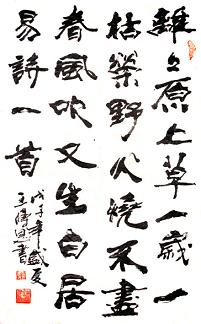 離々原上草一歲一
枯榮野火燒不盡
春風吹又生白居
易詩一首
戊子年盛夏
王 書